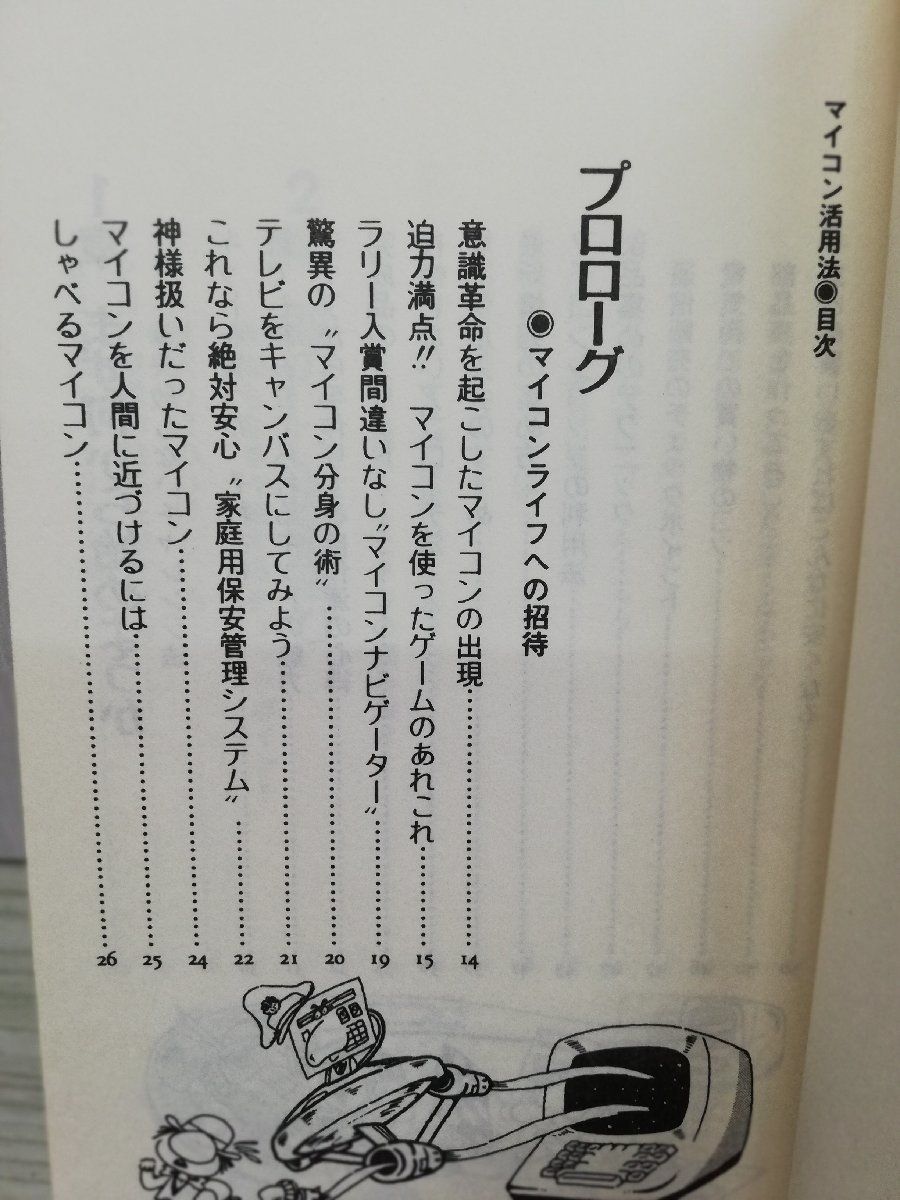 マイコン活用法◉目次
プロローグ
◉マイコンライフへの招待
意識革命を起こしたマイコンの出現……………………14
迫力満点!! マイコンを使ったゲームのあれこれ…………15
ラリー入賞間違いなし〝マイコンナビゲーター〟……………19
驚異の〝マイコン分身の術〟……………………………20
テレビをキャンバスにしてみよう……………………………21
これなら絶対安心〝家庭用保安管理システム〟……………22
神様扱いだったマイコン……………………………………24
マイコンを人間に近づけるには……………………………25
しゃべるマイコン……………………………………………26